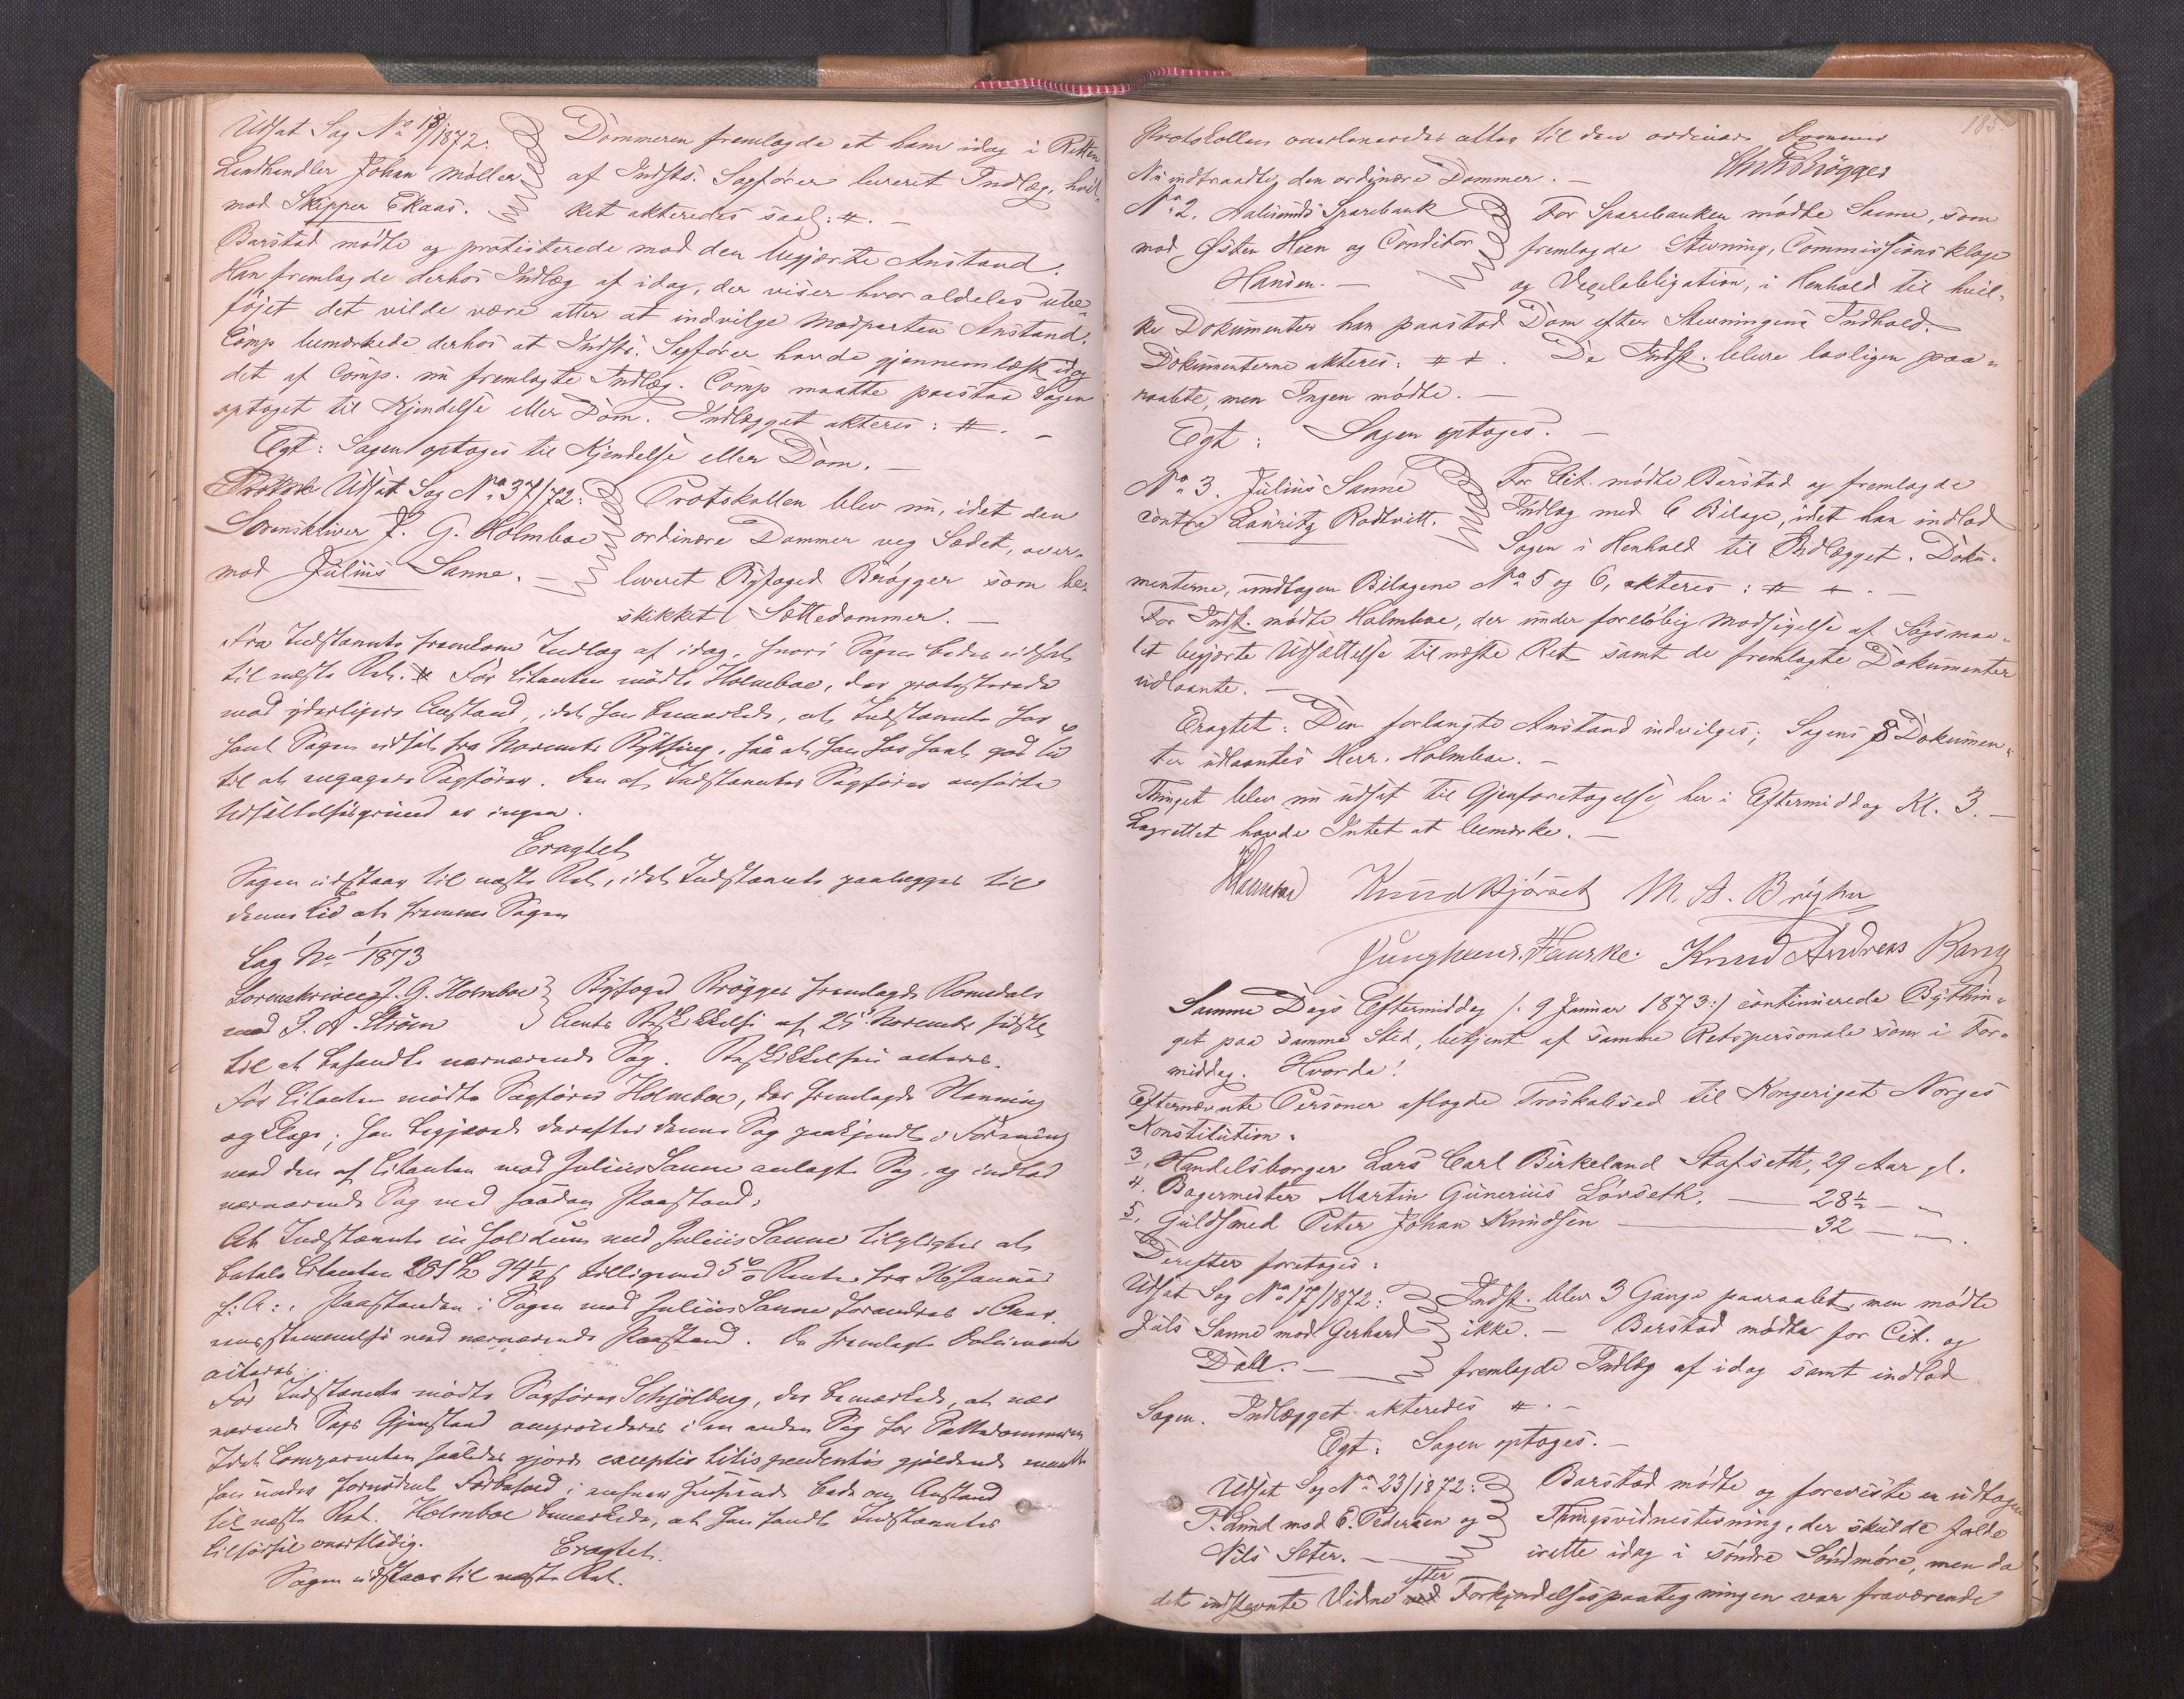 Udsat Sag No 18/1872:
Læderhandler Johan Møller
mod Skipper Ekaas.
Dommeren fremlagde et ham idag i Retten
af Indsts. Sagfører leveret Indlæg, hvil-
ket akteredes saal: #. -
Barstad mødte og protesterede mod den begjærte Anstand.
Han fremlagde derhos Indlæg af idag, der viser hvor aldeles ube-
føjet det vilde være atter at indvilge Modparten Anstand.
Comp bemærkede derhos at Indsts. Sagfører havde gjennemlæst idag
det af Comp. nu fremlagte Indlæg. Comp maatte paastaa Sagen
optaget til Kjendelse eller Dom. Indlægget akteres: #. -
Egt: Sagen optages til Kjendelse eller Dom. -
Udsat Sag No 37/72:
Sorenskriver J. G. Holmboe
mod Julius Sanne. -
Protokollen blev nu, idet den
ordinære Dommer veg Sædet, over-
leveret Byfoged Brøgger som be-
skikket Sættedommer. -
Fra Indstævnte fremkom Indlæg af idag, hvori Sagen bedes udsat
til næste Ret. # For Citanten mødte Holmboe, der protesterede
mod yderligere Anstand, idet han bemærkede, at Indstævnte har
havt Sagen udsat fra Novembr Bything, saa at han har havt god Tid
til at engagere Sagfører. Den af Indstævntes Sagfører anførte
Udsættelsesgrund er ingen.
Eragtet
Sagen udstaar til næste Ret, idet Indstævnte paalægges til
denne Tid at fremme Sagen
Sag No 1/1873
Sorenskriver J. G. Holmboe
mod J. A. Strøm
Byfoged Brøgger fremlagde Romsdals
Amts Beskikkelse af 25 Novembr sidstl
til at behandle nærværende Sag. Beskikkelsen acteres.
For Citanten mødte Sagfører Holmboe, der fremlagde Stævning
og Klage; han begjærede derefter denne Sag paakjendt i Forening
med den af Citanten mod Julius Sanne anlagte Sag, og indlod
nærværende Sag med saadan Paastand:
At Indstævnte in solidum med Julius Sanne tilpligtes at
betale Citanten 281 Spd 94½ s tilligemed 5% Renter fra 26 Januar
f: A:, Paastanden i Sagen mod Julius Sanne forandres i Over-
ensstemmelse med nærværende Paastand. De fremlagte Dokumenter
acteres.
For Indstævnte mødte Sagfører Schjølberg, der bemærkede, at nær
værende Sags Gjenstand i en anden Sag for Sættedommeren
Idet Comparenten saaledes gjorde exceptio litis pendentis gjældende maatte
han under fornødent Forbehold i enhver Henseende bede om Anstand
til næste Ret. Holmboe bemærkede, at han fandt Indstævntes
Tilførsel overflødig.
Eragtet.
Sagen udstaar til næste Ret.
185
Protokollen overleveredes atter til den ordinære Dommer
Brøgger
Nu indtraadte den ordinære Dommer. -
No 2. Aalesunds Sparebank
mod Østen Heen og Conditor
Hansen. -
For Sparebanken mødte Sanne, som
fremlagde Stevning, Commissionsklage
og Vexelobligation, i Henhold til hvil-
ke Dokumenter han paastod Dom efter Stevningens Indhold.
Dokumenterne akteres: # #. De Indst. bleve lovligen paa-
raabte, men Ingen mødte. -
Egt: Sagen optages. -
No 3. Julius Sanne
contra Lauritz Rødtvitt.
For Cit. mødte Barstad og fremlagde
Indlæg med 6 Bilage, idet han indlod
Sagen i Henhold til Indlægget. Doku-
menterne, undtagen Bilagene No 5 og 6, akteres: # #. -
For Indst. mødte Holmboe, der under foreløbig Modsigelse af Søgsmaa-
let begjærte Udsættelse til næste Ret samt de fremlagte Dokumenter
udlaante. -
Eragtet: Den forlangte Anstand indvilges; Sagens 8 Dokumen-
ter udlaantes Herr. Holmboe. -
Thinget blev nu udsat til Gjenforetagelse her i Eftermiddag Kl. 3. -
Lagrettet havde Intet at bemærke. -
Knud Kjørset M. A. Brighn
Junghans. Flaurke. Knud Andreas Rang
Samme Dags Eftermiddag /: 9 Januar 1873:/ continuerede Bythin-
get paa samme Sted, betjent af samme Retspersonale som i For-
middag. Hvorda!
Efternævnte Personer aflagde Troskabsed til Kongeriget Norges
Konstitution.
3, Handelsborger Lars Carl Birkeland Stafseth, 29 Aar gl.
4. Bagermester Martin Gunerius Løvseth. — 28½ — „
5, Guldsmed Peter Johan Knudsen — 32 — „.
Derefter foretages:
Udsat Sag No 17/1872:
Juls Sanne mod Gerhard
Dall. -
Indst. blev 3 Gange paaraabt, men mødte
ikke. - Barstad mødte for Cit. og
fremlagde Indlæg af idag samt indlod
Sagen. Indlægget akteredes #. -
Egt: Sagen optages. -
Udsat Sag No 23/1872:
P. Lund mod E. Pedersen og
Nils Seter. -
Barstad mødte og foreviste en udtagen
Thingsvidnestevning, der skulde falde
irette idag i Søndre Søndmøre, men da
det indstevnte Vidne efter Forkyndelsespaategningen var fraværende